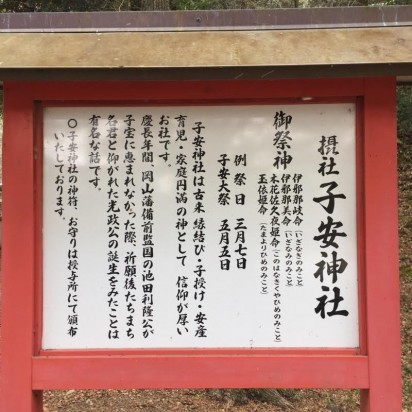 摂社 子安神社
御祭神
伊邪那岐命（いざなぎのみこと）
伊邪那美命（いざなみのみこと）
木花佐久夜姫命（このはなさくやひめのみこと）
玉依姫命（たまよりひめのみこと）
例祭日 三月七日
子安大祭 五月五日
子安神社は古来 縁結び・子授け・安産
育児・家庭円満の神として、信仰が厚い
お社です。
慶長年間、岡山藩備前監国の池田利隆公が
子宝に恵まれなかった際、祈願後たちまち
名君と仰がれた光政公の誕生をみたことは
有名な話です。
〇子安神社の神符、お守りは授与所にて頒布
いたしております。